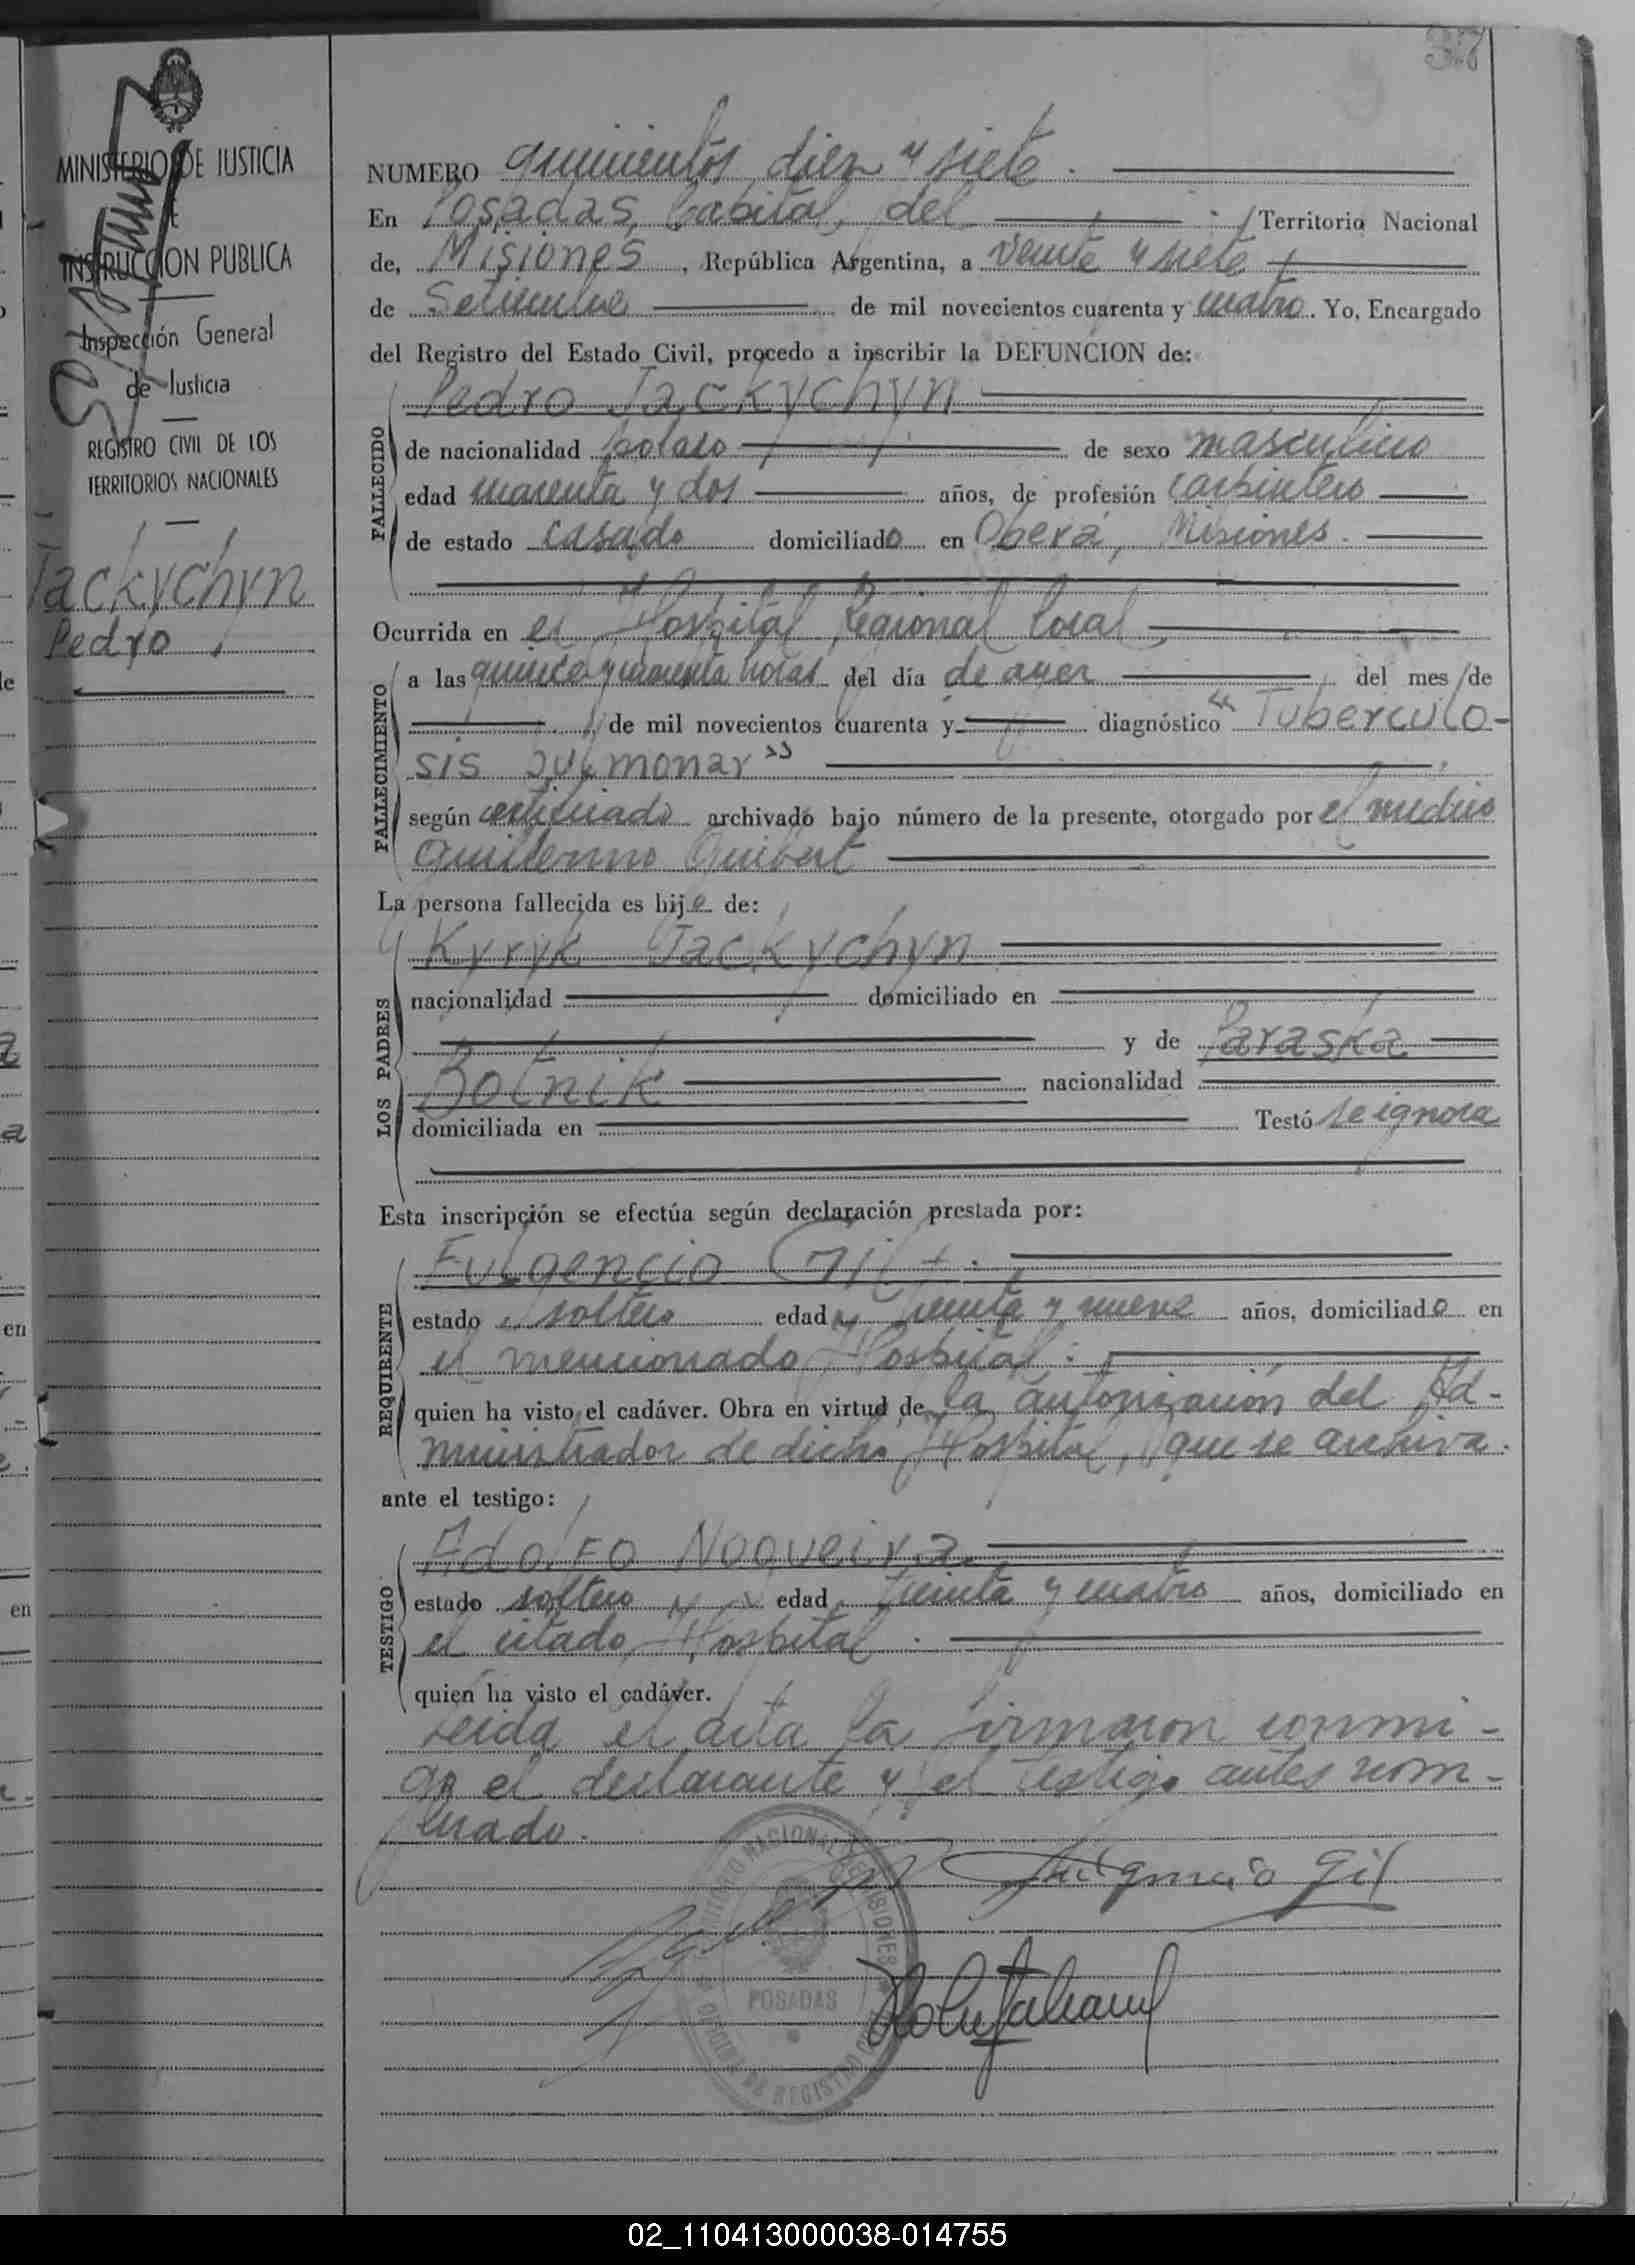 37
MINISTERIO DE JUSTICIA
E
INSTRUCCION PUBLICA
Inspección General
de Justicia
REGISTRO CIVIL DE LOS
TERRITORIOS NACIONALES
Jackychyn
Pedro
NUMERO quinientos diez y siete.
En Posadas, Capital, del Territorio Nacional
de, Misiones, República Argentina, a veinte y siete
de Setiembre de mil novecientos cuarenta y cuatro. Yo, Encargado
del Registro del Estado Civil, procedo a inscribir la DEFUNCION de:
FALLECIDO
Pedro Jackychyn
de nacionalidad polaco de sexo masculino
edad cuarenta y dos años, de profesión carpintero
de estado casado domiciliado en Oberá, Misiones.
Ocurrida en el Hospital Regional local
FALLECIMIENTO
a las quince y cuarenta horas del día de ayer del mes de
de mil novecientos cuarenta y diagnóstico "Tuberculo-
sis pulmonar"
según certificado archivado bajo número de la presente, otorgado por el médico
Guillermo Guibert
La persona fallecida es hijo de:
LOS PADRES
Kyryk Jackychyn
nacionalidad domiciliado en
y de Paraska
Botnik nacionalidad
domiciliada en Testó se ignora
Esta inscripción se efectúa según declaración prestada por:
REQUIRENTE
Fulgencio Gil
estado soltero edad treinta y nueve años, domiciliado en
el mencionado Hospital.
quien ha visto el cadáver. Obra en virtud de la autorización del Ad-
ministrador de dicho Hospital, que se archiva.
ante el testigo:
TESTIGO
Adolfo Nogueira
estado soltero edad treinta y cuatro años, domiciliado en
el citado Hospital.
quien ha visto el cadáver.
Leída el acta la firmaron conmi-
go el declarante y el testigo antes nom-
brado.
Gil
TERRITORIO NACIONAL DE MISIONES
POSADAS
OFICINA DE REGISTRO CIVIL
02_110413000038-014755